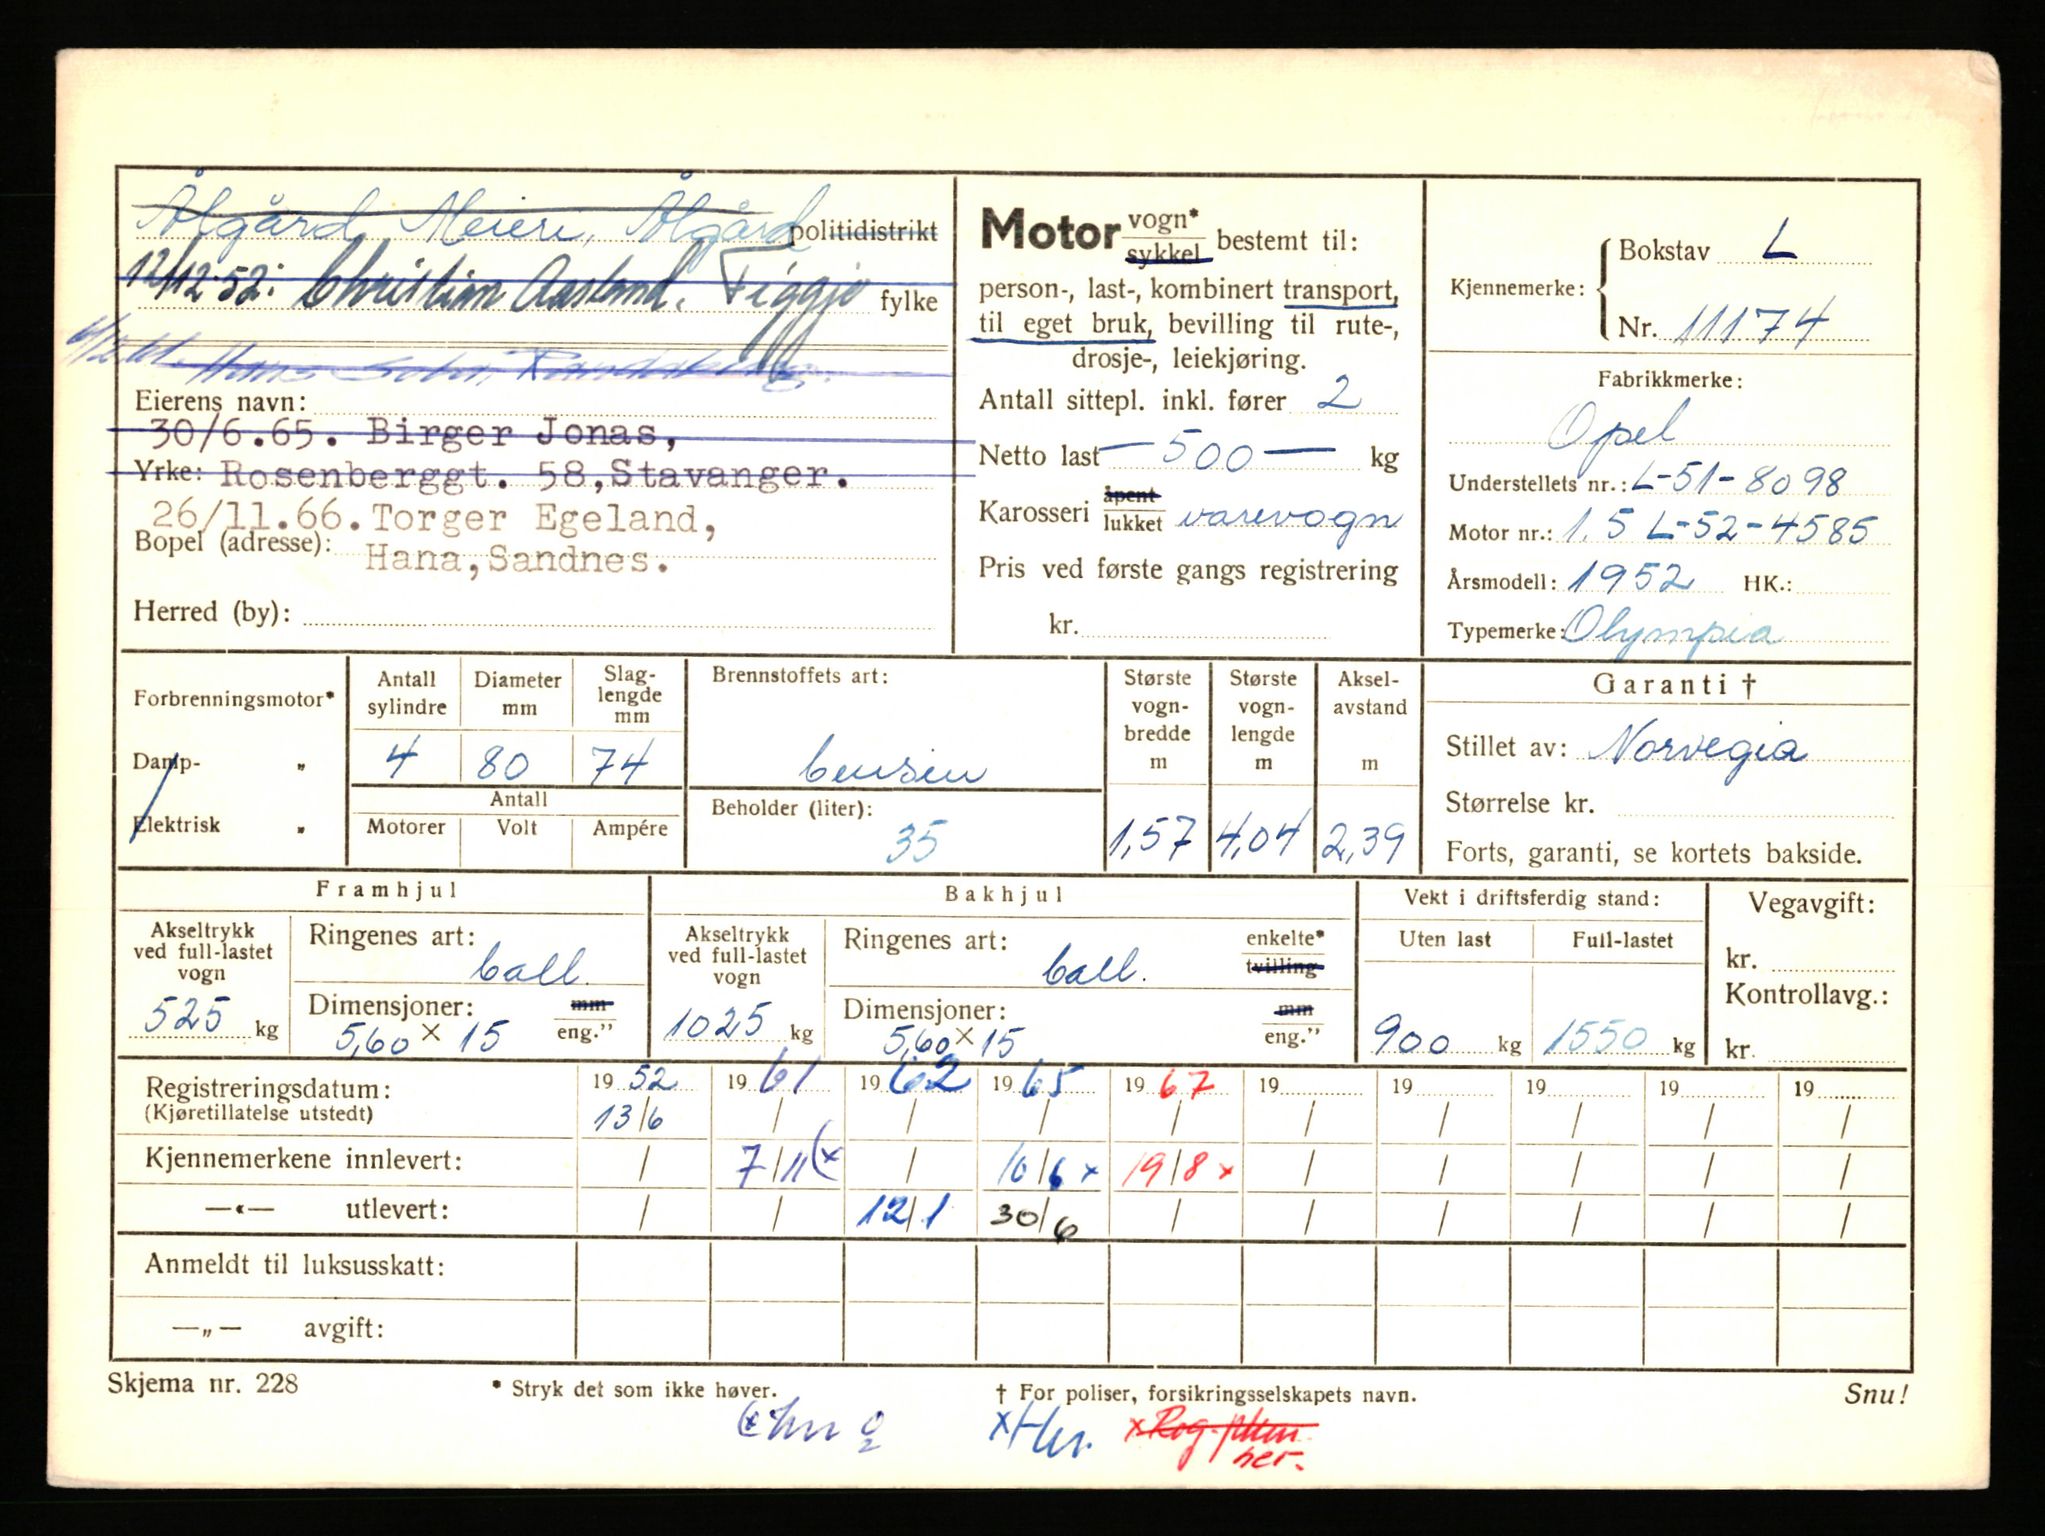 Ålgård Meieri, Ålgård politidistrikt
12/12-52: Christian Aasland. Figgjo fylke
Eierens navn:
30/6.65. Birger Jonas,
Yrke: Rosenberggt. 58, Stavanger.
26/11.66. Torger Egeland,
Bopel (adresse): Hana, Sandnes.
Herred (by):
Motor vogn* sykkel bestemt til:
person-, last-, kombinert transport,
til eget bruk, bevilling til rute-,
drosje-, leiekjøring.
Antall sittepl. inkl. fører 2
Netto last — 500 — kg
Karosseri åpent lukket varevogn
Pris ved første gangs registrering
kr.
Kjennemerke: Bokstav L
Nr. 11174
Fabrikkmerke:
Opel
Understellets nr.: L-51-8098
Motor nr.: 1.5 L-52-4585
Årsmodell: 1952 HK.:
Typemerke: Olympia
Forbrenningsmotor*
Damp- „
Elektrisk „
Antall sylindre Diameter mm Slag-lengde mm
4 80 74
Antall
Motorer Volt Ampére
Brennstoffets art:
bensin
Beholder (liter):
35
Største vogn-bredde m Største vogn-lengde m Aksel-avstand m
1,57 4,04 2,39
Garanti †
Stillet av: Norvegia
Størrelse kr.
Forts, garanti, se kortets bakside.
Framhjul
Akseltrykk ved full-lastet vogn
525 kg
Ringenes art:
ball.
Dimensjoner: mm
5,60 x 15 eng."
Bakhjul
Akseltrykk ved full-lastet vogn
1025 kg
Ringenes art: enkelte*
ball. tvilling
Dimensjoner: mm
5,60 x 15 eng."
Vekt i driftsferdig stand:
Uten last Full-lastet
900 kg 1550 kg
Vegavgift:
kr.
Kontrollavg.:
kr.
Registreringsdatum: 19 52 19 61 19 62 19 65 19 67 19 19 19 19 19
(Kjøretillatelse utstedt) 13/6 / / / / / / / / /
Kjennemerkene innlevert: / 7/11 (x / 10/6 x 19/8 x / / / / /
—«— utlevert: / / 12/1 30/6 / / / / / /
Anmeldt til luksusskatt:
—„— avgift:
Skjema nr. 228 * Stryk det som ikke høver. † For poliser, forsikringsselskapets navn. Snu!